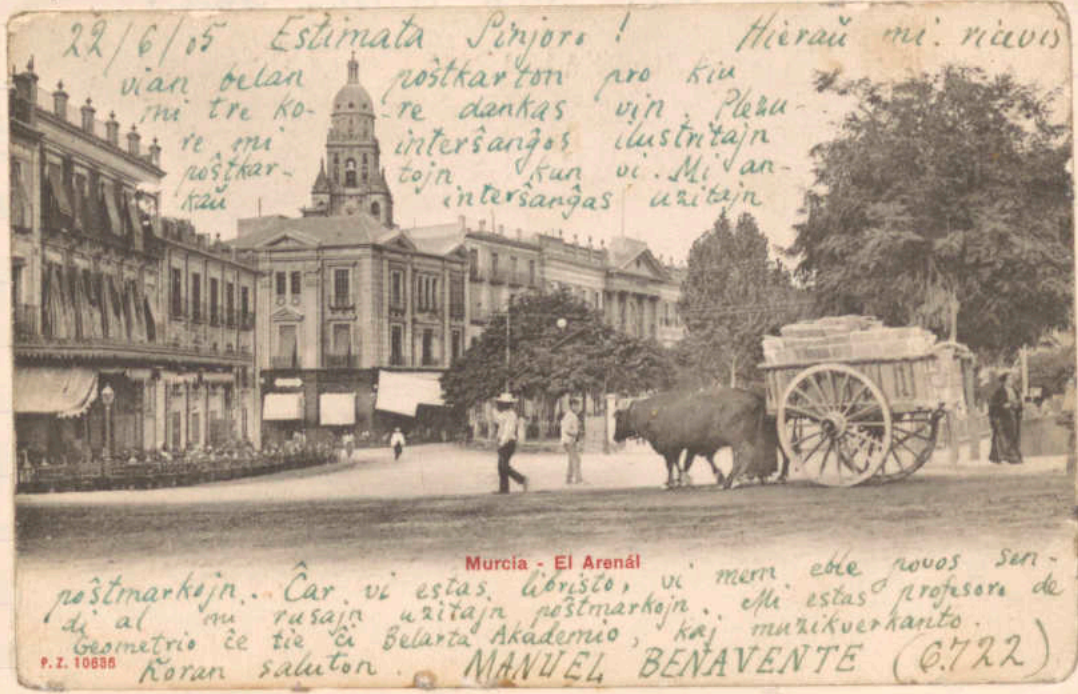 22/6/05 Estimata Sinjoro! Hieraŭ mi ricevis
vian belan poŝtkarton pro kiu
mi tre ko- -re dankas vin. Plezu-
re mi interŝanĝos ilustritajn
poŝtkar- tojn kun vi. Mi an-
kaŭ interŝanĝas uzitajn
Murcia - El Arenál
poŝtmarkojn. Ĉar vi estas libristo, vi mem eble povos sen-
di al mi rusajn uzitajn poŝtmarkojn. Mi estas profesoro de
Geometrio ĉe tie ĉi Belarta Akademio, kaj muzikverkanto.
P. Z. 10686
Koran saluton. MANUEL BENAVENTE (6.722)